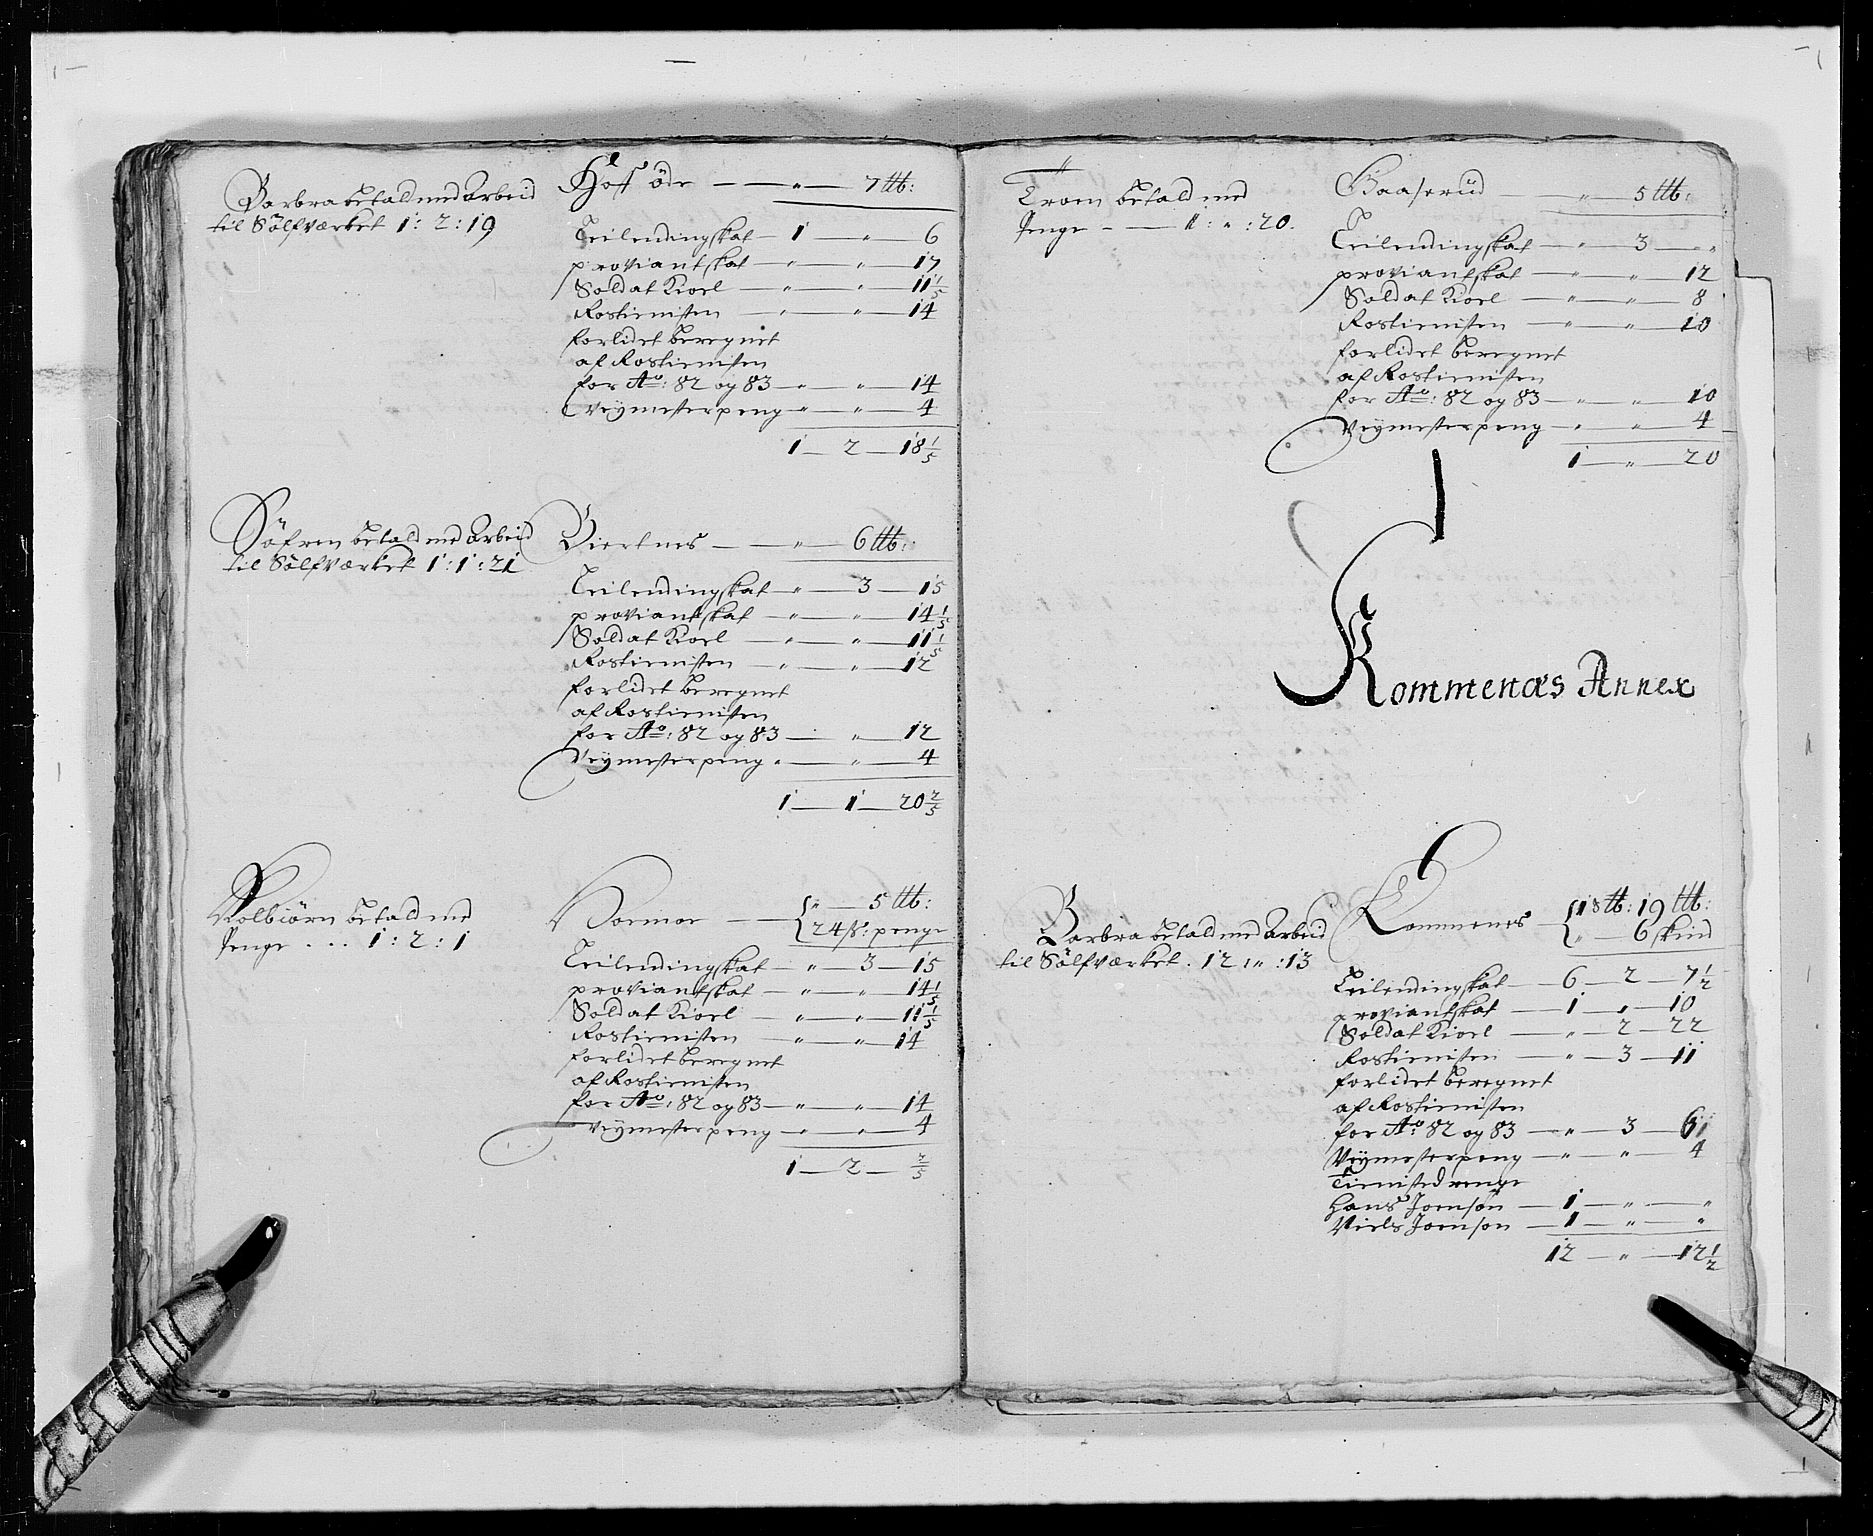 Barbra betald med Arbeid
til Sölfværket 1 : 2 : 19
Hoff öde — „ — 7 ℔:
Leilendingskat — 1 — „ — 6
proviantskat — „ — „ — 17
Soldat Kioel — „ — „ — 11 1/5
Rostienisten — „ — „ — 14
forlidet beregnet
af Rostienisten
for Ao: 82 og 83 — „ — „ — 14
Veymesterpeng — „ — „ — 4
1 — 2 — 18 1/5
Söfren betald med Arbeid
til Sölfværket 1 : 1 : 21
Biertnes — „ — 6 ℔:
Leilendingskat — „ — 3 — 15
proviantskat — „ — „ — 14 1/5
Soldat Kioel — „ — „ — 11 1/5
Rostienisten — „ — „ — 12
forlidet beregnet
af Rostienisten
for Ao: 82 og 83 — „ — 12
Veymesterpeng „ — „ — 4
1 — 1 — 20 2/5
Kolbiörn betald med
Penge . . . 1 : 2 : 1
„ — 5 ℔:
24 ß: penge
Leilendingskat — „ — 3 — 15
proviantskat — „ — „ — 14 1/5
Soldat Kioel — „ — „ — 11 1/5
Rostienisten — „ — „ — 14
forlidet beregnet
af Rostienisten
for Ao: 82 og 83 — „ — „ — 14
Veymesterpeng — „ — „ — 4
1 — 2 — 2/5
„
Troen betald med
Penge — — 1 : „ : 20.
Haaserüd — „ — 5 ℔:
Leilendingskat — „ — 3 — „
proviantskat — „ — „ — 12
Soldat Kioel — „ — „ — 8
Rostienisten — „ — „ — 10
forlidet beregnet
af Rostienisten
for Ao: 82 og 83 — „ — „ — 10
Veymesterpeng — „ — „ — 4
1 — „ — 20
Kommenæs Annex
Barbra betald med Arbeid
til Sölfværket . 12 : „ : 13
Kommenes — 1 S℔: 19 ℔:
„ — 6 skind
Leilendingskat — 6 — 2 — 7 1/2
proviantskat — 1 — „ — 10
Soldat Kioel — „ — 2 — 22
Rostienisten — „ — 3 — 11
forlidet beregnet
af Rostienisten
for Ao: 82 og 83 — „ — 3 —
Veymesterpeng — „ — „ — 4
Tienistedrenge
Hans Joensøn — 1 — „ — „
Niels Joensøn — 1 — „ — „
12 — „ — 12 1/2